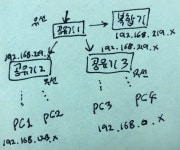 유선
공유기1
복합기
192.168.219.x
192.168.219.x
공유기2
유선
공유기3
PC1
PC2
PC3
PC4
192.168.128.x
192.168.0.x